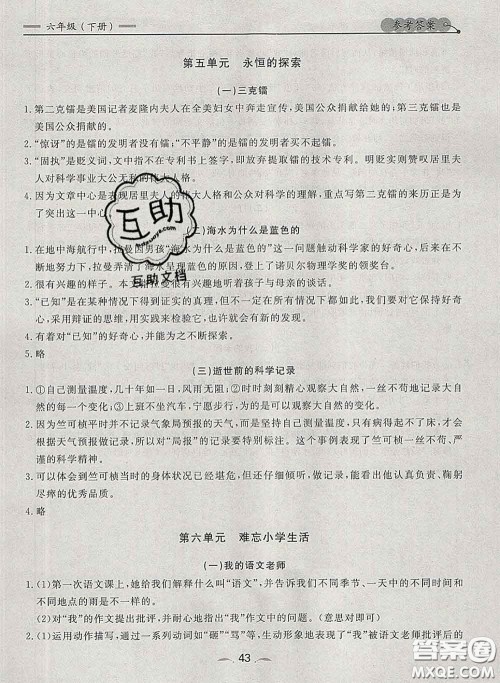 六年级(下册)
参考答案
第五单元　永恒的探索
(一)三克镭
1. 第二克镭是美国记者麦隆内夫人在全美妇女中奔走宣传,美国公众捐献给她的;第三克镭也是
美国公众捐献的。
2. “惊讶”的是镭的发明者没有镭;“不平静”的是镭的发明者买不起镭。
3. “固执”是贬义词,文中指不在专利书上签字,即放弃提取镭的技术专利。明贬实则赞叹居里夫
人对科学事业大公无私的伟大人格。
4. 因为文章中心是表现居里夫人伟大人格和对科学的理解,重点写第二克镭的来历正是为了
突出这一中心。
(二)海水为什么是蓝色的
1. 在地中海航行中,拉曼因男孩“海水为什么是蓝色的”这一问题触动科学家的好奇心,后来在
不断探索下,拉曼弄清了海水呈现蓝色的原因,登了诺贝尔物理学奖的领奖台。
2. 很有兴趣的样子。从本文中指拉曼很有兴趣地听着孩子与母亲的谈话。
3. “已知”的是在某种情况下得到证实的真理,但不一定在所有情况下都如此,我们要对它保持好奇
心,采用辩证的思维,用实践来检验它,也许就会有新的发现。
4. 有着对“已知”的好奇心,并能为之不断探索。
5. 略
(三)逝世前的科学记录
1. ①自己测量温度,几十年如一日,风雨无阻;②时时刻刻精心观察大自然,一丝不苟地记录大自
然的每一个变化;③上班不坐汽车,宁愿步行,为的就是可以观察大自然。
2. 因为竺可桢平时并不记录气象局预报的天气,而是坚持自己测量温度,只有病得起不了床了,才会
根据天气预报做记录,所以对“局报”的记录要特别标注。这个事例表现了竺可桢一丝不苟、
严谨的科学精神。
3. 可以体会到竺可桢当时的身体状况已经很差,但还仔细倾听,坚持做记录,看出他认真负责、鞠躬
尽瘁的优秀品质。
4. 略
第六单元　难忘小学生活
(一)我的语文老师
1. (1)第一次语文课上,她给我们解释什么叫“语文”,并告诉我们不同季节、一天的不同时间和不
同地点的雨是不一样的。
(2)对“我”的作文提出批评,并耐心地指出“我”作文的不当之处。(意思对即可)
2. (1)运用动作描写,通过一系列动词如“砸”“骂”等,生动形象地表现了“我”被语文老师批评后的
43
互助
互助文档
答案圈